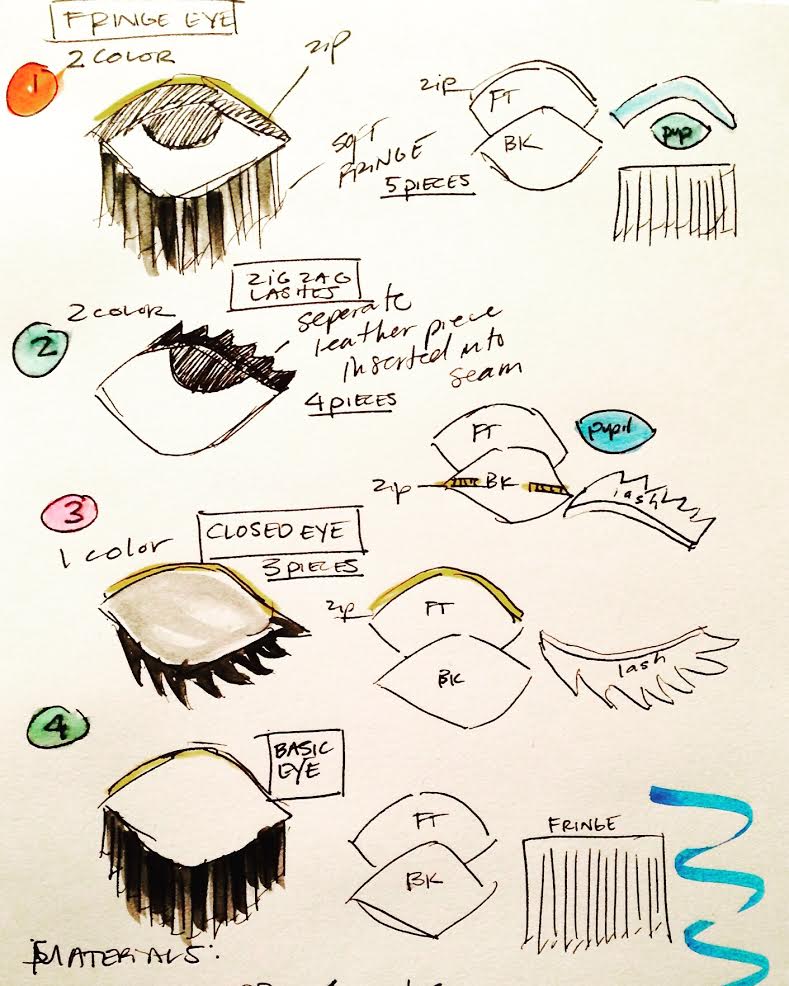 FRINGE EYE
1
2 COLOR
zip
SOFT
FRINGE
zip
FT
BK
pup
5 PIECES
ZIG ZAG
LASHES
2 COLOR
2
seperate
leather piece
inserted into
seam
4 PIECES
FT
pupil
zip
BK
lash
3
1 color
CLOSED EYE
3 PIECES
zip
FT
BK
lash
4
BASIC
EYE
FT
BK
FRINGE
MATERIALS: